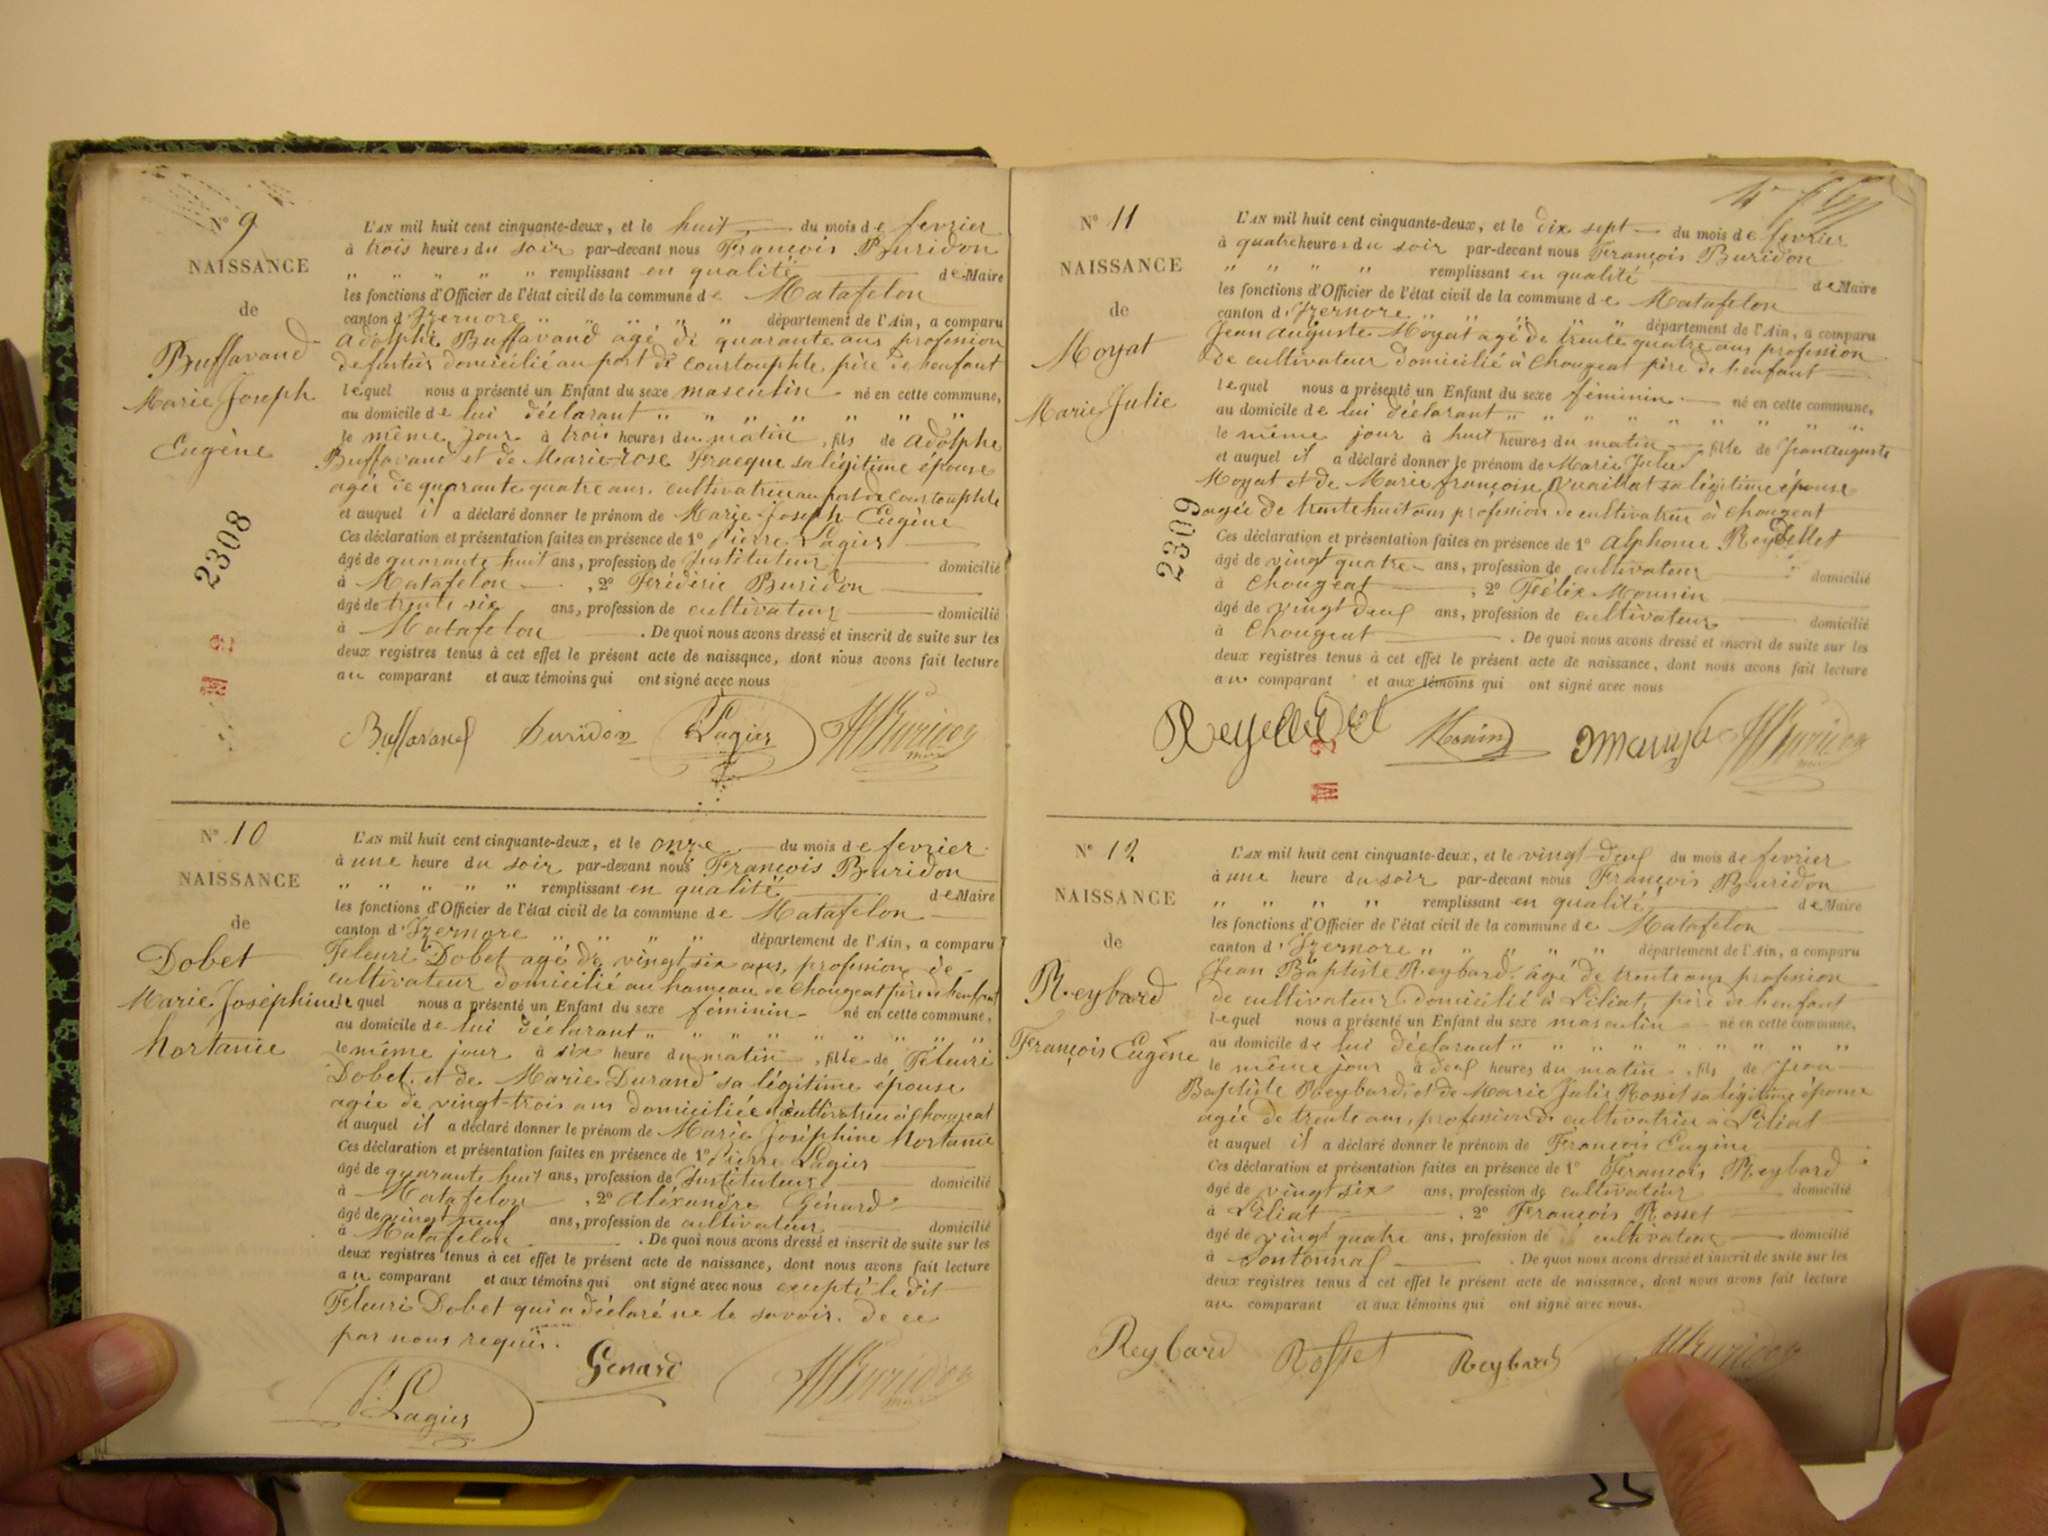 N° 9
NAISSANCE
de
Buffavand
Marie Joseph
Eugène
2308
L'AN mil huit cent cinquante-deux, et le huit du mois de fevrier
à trois heures du soir par-devant nous François Buridon
" " " " " remplissant en qualité de Maire
les fonctions d'Officier de l'état civil de la commune de Matafelon
canton d'Izernore " " " " " département de l'Ain, a comparu
Adolphe Buffavand agé de quarante ans profession
domicilié au port de courtouphle père de l'enfant
lequel nous a présenté un Enfant du sexe masculin né en cette commune,
au domicile de lui déclarant " " " " " " "
le même jour à trois heures du matin, fils de Adolphe
Buffavand et de Marie-rose sa légitime épouse
agée de quarante quatre ans. cultivatrice au port de courtouphle
et auquel il a déclaré donner le prénom de Marie Joseph Eugène
Ces déclaration et présentation faites en présence de 1° Pierre Lagier
âgé de quarante huit ans, profession de Instituteur domicilié
à Matafelon, 2° Frédéric Buridon
âgé de trente six ans, profession de cultivateur domicilié
à Matafelon. De quoi nous avons dressé et inscrit de suite sur les
deux registres tenus à cet effet le présent acte de naissance, dont nous avons fait lecture
au comparant et aux témoins qui ont signé avec nous
Buffavand Buridon P Lagier Buridon
maire
N° 10
NAISSANCE
de
Dobet
Marie Joséphine
hortanie
L'AN mil huit cent cinquante-deux, et le onze du mois de fevrier
à une heure du soir par-devant nous François Buridon
" " " " " remplissant en qualité de Maire
les fonctions d'Officier de l'état civil de la commune de Matafelon
canton d'Izernore " " " " département de l'Ain, a comparu
Fleuri Dobet agé de vingt six ans, profession de
cultivateur domicilié au hameau de Chougeat père de l'enfant
lequel nous a présenté un Enfant du sexe féminin né en cette commune,
au domicile de lui déclarant " " " " " " "
le même jour à six heure du matin, fille de Fleuri
Dobet et de Marie Durand sa légitime épouse
agée de vingt-trois ans domiciliée cultivatrice à Chougeat
et auquel il a déclaré donner le prénom de Marie Joséphine hortanie
Ces déclaration et présentation faites en présence de 1° Pierre Lagier
âgé de quarante huit ans, profession de Instituteur domicilié
à Matafelon, 2° Aléxandre Génard
âgé de vingt neuf ans, profession de cultivateur domicilié
à Matafelon. De quoi nous avons dressé et inscrit de suite sur les
deux registres tenus à cet effet le présent acte de naissance, dont nous avons fait lecture
au comparant et aux témoins qui ont signé avec nous excepté le dit
Fleuri Dobet qui a déclaré ne le savoir. de ce
par nous requis.
P Lagier Genard Buridon
N° 11
NAISSANCE
de
Moyat
Marie Julie
2309
L'AN mil huit cent cinquante-deux, et le dix sept du mois de fevrier
à quatre heures du soir par-devant nous François Buridon
" " " " remplissant en qualité de Maire
les fonctions d'Officier de l'état civil de la commune de Matafelon
canton d'Izernore " " " " " département de l'Ain, a comparu
Jean Auguste Moyat agé de trente quatre ans profession
de cultivateur domicilié à Chougeat père de l'enfant
lequel nous a présenté un Enfant du sexe féminin né en cette commune,
au domicile de lui déclarant " " " " " " " "
le même jour à huit heures du matin fille de Jean Auguste
et auquel il a déclaré donner le prénom de Marie Julie
Moyat et de Marie françoise Vuaillat sa légitime épouse
agée de trente huit ans profession de cultivatrice à Chougeat
Ces déclaration et présentation faites en présence de 1° Alphonse Reydellet
âgé de vingt quatre ans, profession de cultivateur domicilié
à Chougeat, 2° Félix Mounin
âgé de vingt deux ans, profession de cultivateur domicilié
à Chougeat. De quoi nous avons dressé et inscrit de suite sur les
deux registres tenus à cet effet le présent acte de naissance, dont nous avons fait lecture
au comparant et aux témoins qui ont signé avec nous
Monin Buridon
maire
N° 12
NAISSANCE
de
Reybard
François Eugène
L'AN mil huit cent cinquante-deux, et le vingt-deux du mois de fevrier
à une heure du soir par-devant nous François Buridon
" " " " remplissant en qualité de Maire
les fonctions d'Officier de l'état civil de la commune de Matafelon
canton d'Izernore " " " " " département de l'Ain, a comparu
Jean Baptiste Reybard agé de trente ans profession
de cultivateur domicilié à Liliat, père de l'enfant
lequel nous a présenté un Enfant du sexe masculin né en cette commune,
au domicile de lui déclarant " " " " " " " "
le même jour à deux heures du matin, fils de Jean
Baptiste Reybard et de Marie Julie Rosset sa légitime épouse
agée de trente ans, profession de cultivatrice à Liliat
et auquel il a déclaré donner le prénom de François Eugène
Ces déclaration et présentation faites en présence de 1° François Reybard
âgé de vingt six ans, profession de cultivateur domicilié
à Liliat, 2° François Rosset
âgé de vingt quatre ans, profession de cultivateur domicilié
à. De quoi nous avons dressé et inscrit de suite sur les
deux registres tenus à cet effet le présent acte de naissance, dont nous avons fait lecture
au comparant et aux témoins qui ont signé avec nous.
Reybard Rosset Reybard Buridon